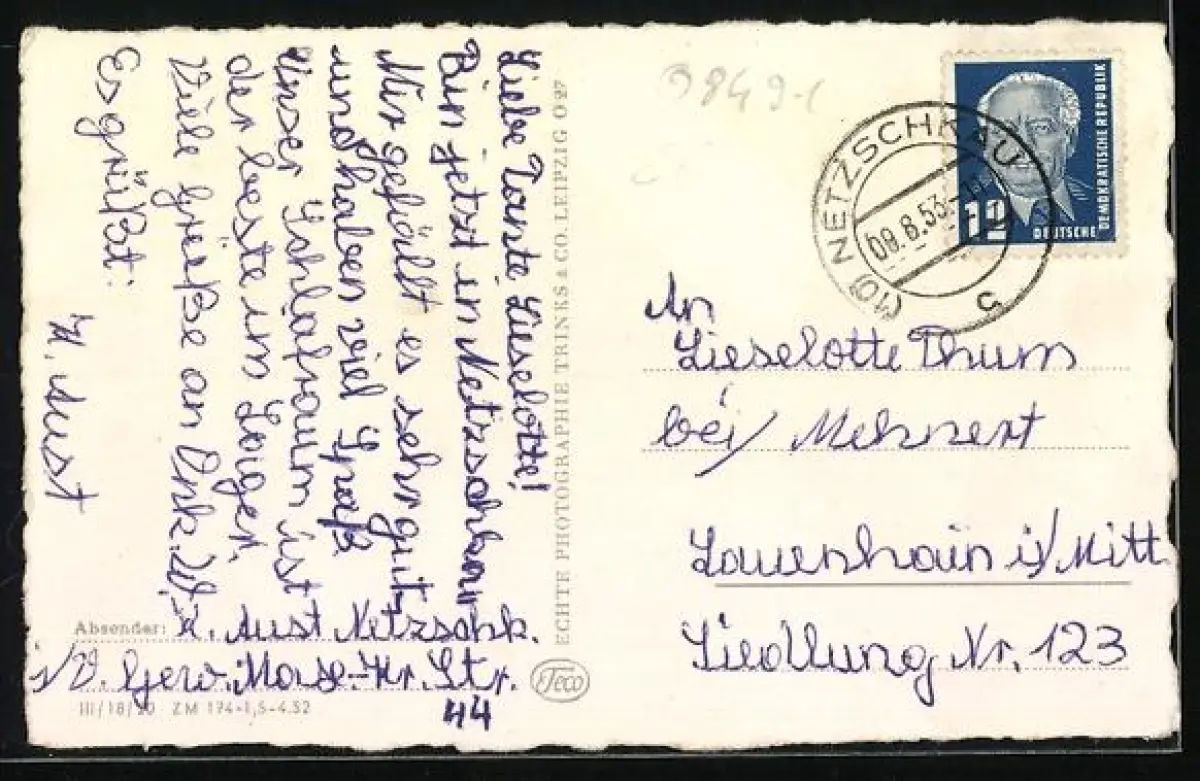 Liebe Tante Lieselotte!
Bin jetzt in Netzschkau
Mir gefällt es sehr gut,
und haben viel Spaß.
Unser Schlafraum ist
der beste im Lager.
Viele Grüße an Onk. W.
Es grüßt:
H. Aust
Absender: H. Aust Netzschk.
i/V. Gerv. Str.
44
III/18/20 ZM 174-1,5-4.52
ECHTE PHOTOGRAPHIE TRINKS & CO. LEIPZIG O 27
Teco
9849-1
(10) NETZSCHKAU
09.8.53.
c
12
DEUTSCHE
DEMOKRATISCHE REPUBLIK
An
Lieselotte Thum
bei/ Mehnert
Lauenhain i/Mitt
Siedlung Nr. 123